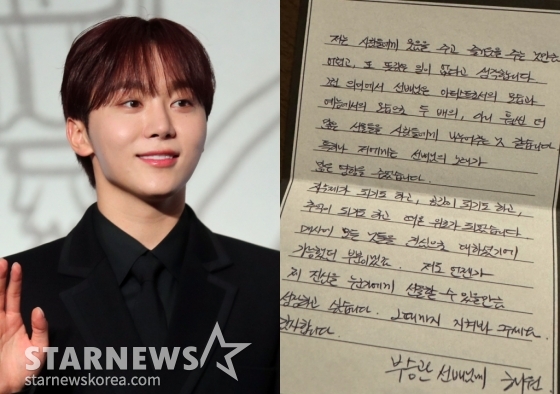 저는 사람들에게 웃음을 주고 즐거움을 주는 것만큼
어렵고, 또 뜻깊은 일이 없다고 생각합니다
그런 의미에서 선배님은 아티스트로서의 모습과
예능에서의 모습으로 두 배의, 아니 훨씬 더
많은 선물들을 사람들에게 나누어주는 것 같습니다.
특히나 저에게는 선배님의 노래가
많은 주었습니다.
자극제가 되기도 하고, 되기도 하고,
추억이 되기도 하고 때로 위로가 되었습니다
매사에 모든 것들을 진심으로 대하셨기에
가능했던 부분이겠죠. 저도 언젠가
제 진심을 누군가에게 선물할 수 있을만큼
성장하고 싶습니다. 그때까지 지켜봐 주세요.
감사합니다.
부승관 선배님께
STARNEWS
starnewskorea.com